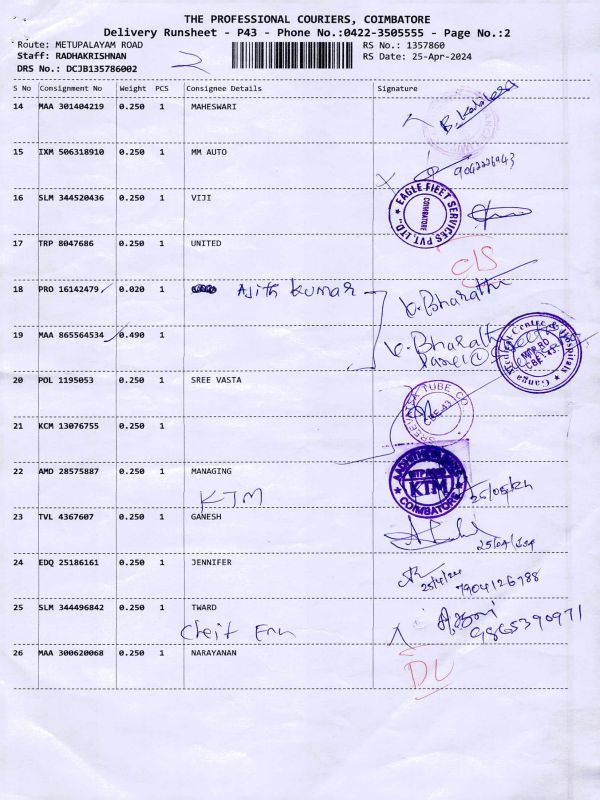 THE PROFESSIONAL COURIERS, COIMBATORE
Delivery Runsheet - P43 - Phone No.:0422-3505555 - Page No.:2
Route: METUPALAYAM ROAD RS No.: 1357860
Staff: RADHAKRISHNAN RS Date: 25-Apr-2024
DRS No.: DCJB135786002
S No Consignment No Weight PCS Consignee Details Signature
14 MAA 301404219 0.250 1 MAHESWARI
15 IXM 506318910 0.250 1 MM AUTO
9042226943
16 SLM 344520436 0.250 1 VIJI
EAGLE FLEET SERVICES PVT. LTD. COIMBATORE
17 TRP 8047686 0.250 1 UNITED
18 PRO 16142479 0.020 1 Ajith Kumar K. Bharathi
19 MAA 865564534 0.490 1 K. Bharathi
Ganga Medical Centre & Hospitals MTP RD CBE-43
20 POL 1195053 0.250 1 SREE VASTA
TUBE CO. CBE-43
21 KCM 13076755 0.250 1
22 AMD 28575887 0.250 1 MANAGING
KTM KTM COIMBATORE
23 TVL 4367607 0.250 1 GANESH
24 EDQ 25186161 0.250 1 JENNIFER
25/4/24 7904126788
25 SLM 344496842 0.250 1 TWARD
9865390971
26 MAA 300620068 0.250 1 NARAYANAN
DL